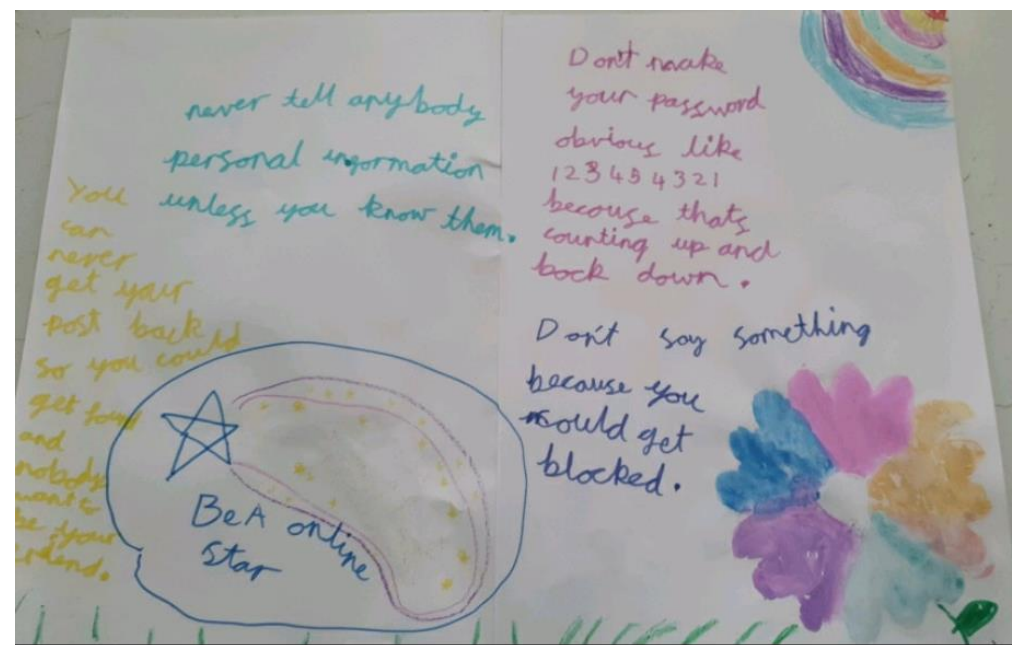 never tell anybody
personal information
unless you know them.
You
can
never
get your
post back
so you could
get
and
nobody
wants
be your
friend.
BeA online
star
Don't make
your password
obvious like
123454321
becouse thats
counting up and
back down.
Don't say something
because you
could get
blocked.